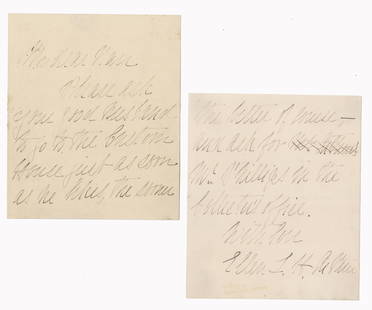 My dear Nan
Please ask
your good Husband
to go to the Custom
House just as soon
as he
this letter of mine –
and ask for
Mr. Phillips in the
Collector's office.
With love
Ellen L. H.